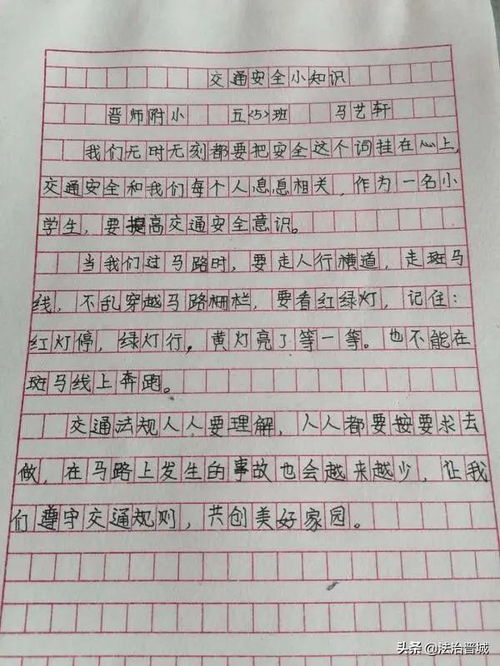 交通安全小知识
晋师附小 五<5>班 马艺轩
我们无时无刻都要把安全这个词挂在心上,
交通安全和我们每个人息息相关,作为一名小
学生,要提高交通安全意识。
当我们过马路时,要走人行横道,走斑马
线,不乱穿越马路栅栏,要看红绿灯,记住:
红灯停,绿灯行,黄灯亮了等一等。也不能在
斑马线上奔跑。
交通法规人人要理解,人人都要按要求去
做,在马路上发生的事故也会越来越少,让我
们遵守交通规则,共创美好家园。
头条 @法治晋城